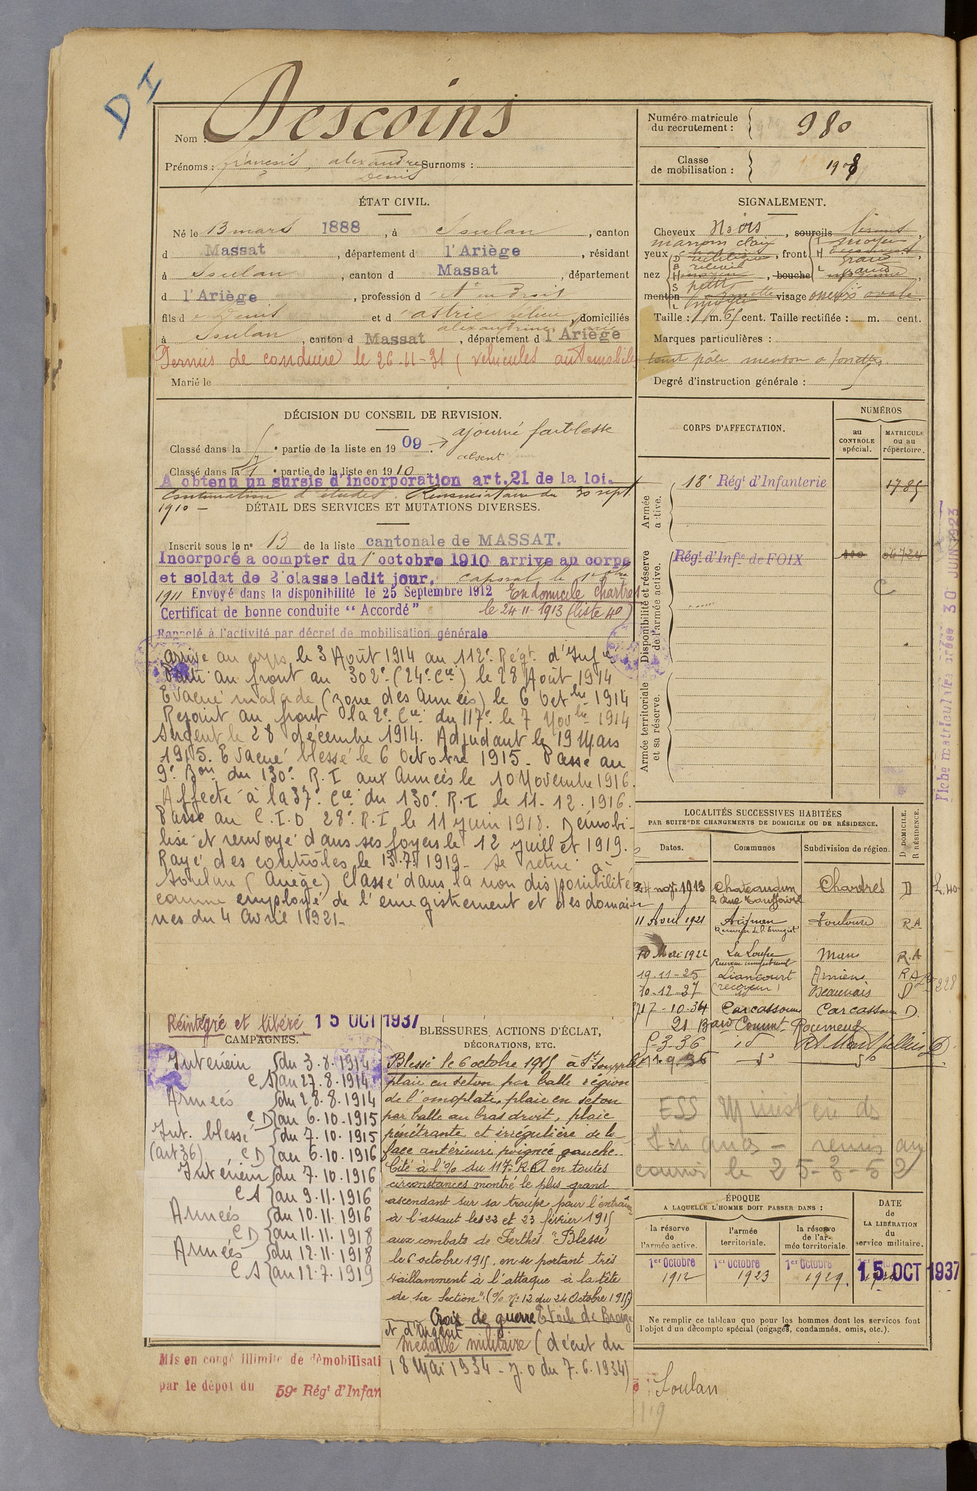 DI
Nom : Descoins
Prénoms : françois, alexandre Surnoms :
Denis
Numéro matricule
du recrutement : 980
Classe
de mobilisation : 1908
ÉTAT CIVIL.
Né le 13 mars 1888, à Soulan, canton
d Massat, département d l'Ariège, résidant
à Soulan, canton d Massat, département
d l'Ariège, profession d Et en droit
fils d et d , domiciliés
à Soulan, canton d Massat, département d l'Ariège
Permis de conduire le 26-11-31 (véhicules automobiles
Marié le
SIGNALEMENT.
Cheveux Noirs, sourcils bruns
marrons clair
yeux, front moyen
nez, bouche
petit
menton visage ovale
Taille : 1 m. 65 cent. Taille rectifiée : m. cent.
Marques particulières :
teint pâle menton à fossette
Degré d'instruction générale :
DÉCISION DU CONSEIL DE REVISION.
Classé dans la 5e partie de la liste en 1909. ajourné faiblesse
absent
Classé dans la 1e partie de la liste en 1910
A obtenu un sursis d'incorporation art.21 de la loi.
Continuation d'études. Renonciation du 30 sept
1910 -
DÉTAIL DES SERVICES ET MUTATIONS DIVERSES.
Inscrit sous le n° 13 de la liste cantonale de MASSAT.
Incorporé a compter du 1er octobre 1910 arrivé au corps
et soldat de 2e classe ledit jour. caporal le
1911 Envoyé dans la disponibilité le 25 Septembre 1912 En domicile Chartres
Certificat de bonne conduite " Accordé " le 24-11-1913 (liste 40)
Rappelé à l'activité par décret de mobilisation générale
Arrivé au corps le 3 Août 1914 au 112e Régt d'Infie
Parti au front au 302e (24e Cie) le 28 Août 1914
Evacué malade (zone des Armées) le 6 Octbre 1914
Rejoint au front la 2e Cie du 117e le 7 Novbre 1914
Sergent le 28 décembre 1914. Adjudant le 19 Mars
1915. Evacué blessé le 6 Octobre 1915. Passé au
9e Bon du 130e R.I aux Armées le 10 Novembre 1916.
Affecté à la 37e Cie du 130e R.I le 11.12.1916.
Passé au C.I.D 28e R.I le 11 juin 1918. Démobi-
lisé et renvoyé dans ses foyers le 12 juillet 1919.
Rayé des contrôles le 13.7.1919 - se retire à
Soulan (Ariège) Classé dans la non disponibilité
comme employé de l'enregistrement et des domai-
nes du 4 Avril 1921-
CORPS D'AFFECTATION.
NUMÉROS
au
CONTROLE
spécial.
MATRICULE
ou au
répertoire.
Armée
active.
18e Régt d'Infanterie 1785
Disponibilité et réserve
de l'armée active.
Régt d'Infie de FOIX 06724
C
Armée territoriale
et sa réserve.
Fiche matriculaire créée 30 JUIN 1923
LOCALITÉS SUCCESSIVES HABITÉES
PAR SUITE DE CHANGEMENTS DE DOMICILE OU DE RÉSIDENCE.
Dates. Communes Subdivision de région. D DOMICILE. R RÉSIDENCE.
24 nov 1913 Chateaudun Chartres D
11 Avril 1921 Toulouse R.A
10 Mars 1922 La Loupe Mans R.A
19-11-25 Liancourt Amiens RA
30-12-27 (receveur) Beauvais D
17-10-34 Carcassonne Carcassonne D
21 Bard Commt Roumeux
5-3-36 id Montpellier D
ESS Ministère des
Finances - remis au
courrier le 25-3-52
Réintégré et libéré 15 OCT 1937
CAMPAGNES.
Intérieur { du 3.8.1914
C S { au 27.8.1914
Armées { du 28.8.1914
C D { au 6.10.1915
Int. blessé { du 7.10.1915
(art 36) C D { au 6.10.1916
Intérieur { du 7.10.1916
C S { au 9.11.1916
Armées { du 10.11.1916
C D { au 11.11.1918
Armées { du 12.11.1918
C S { au 12.7.1919
BLESSURES, ACTIONS D'ÉCLAT,
DÉCORATIONS, ETC.
Blessé le 6 octobre 1915 à St Souplet
plaie en séton par balle région
de l'omoplate, plaie en séton
par balle au bras droit, plaie
pénétrante et irrégulière de la
face antérieure poignet gauche.
Cité à l'O/ du 117e R.I. en toutes
circonstances montré le plus grand
ascendant sur sa troupe pour l'entraîner
à l'assaut les 22 et 23 février 1915
aux combats de Perthes "Blessé
le 6 octobre 1915. en se portant très
vaillamment à l'attaque à la tête
de sa Section". (O/ n° 12 du 24 Octobre 1915)
Croix de guerre Etoile de Bronze
et d'Argent
Médaille militaire (décret du
18 Mai 1934 - J.O du 7.6.1934)
ÉPOQUE
A LAQUELLE L'HOMME DOIT PASSER DANS :
la réserve
de l'armée active.
l'armée
territoriale.
la réserve
de l'armée territoriale.
DATE
de la
LIBÉRATION
du
service militaire.
1er Octobre 1912
1er Octobre 1923
1er Octobre 1929.
15 OCT 1937
Ne remplir ce tableau que pour les hommes dont les services font
l'objet d'un décompte spécial (engagés, condamnés, omis, etc.).
Mis en congé illimité de démobilisati
par le dépôt du 59e Régt d'Infan
Soulan
119